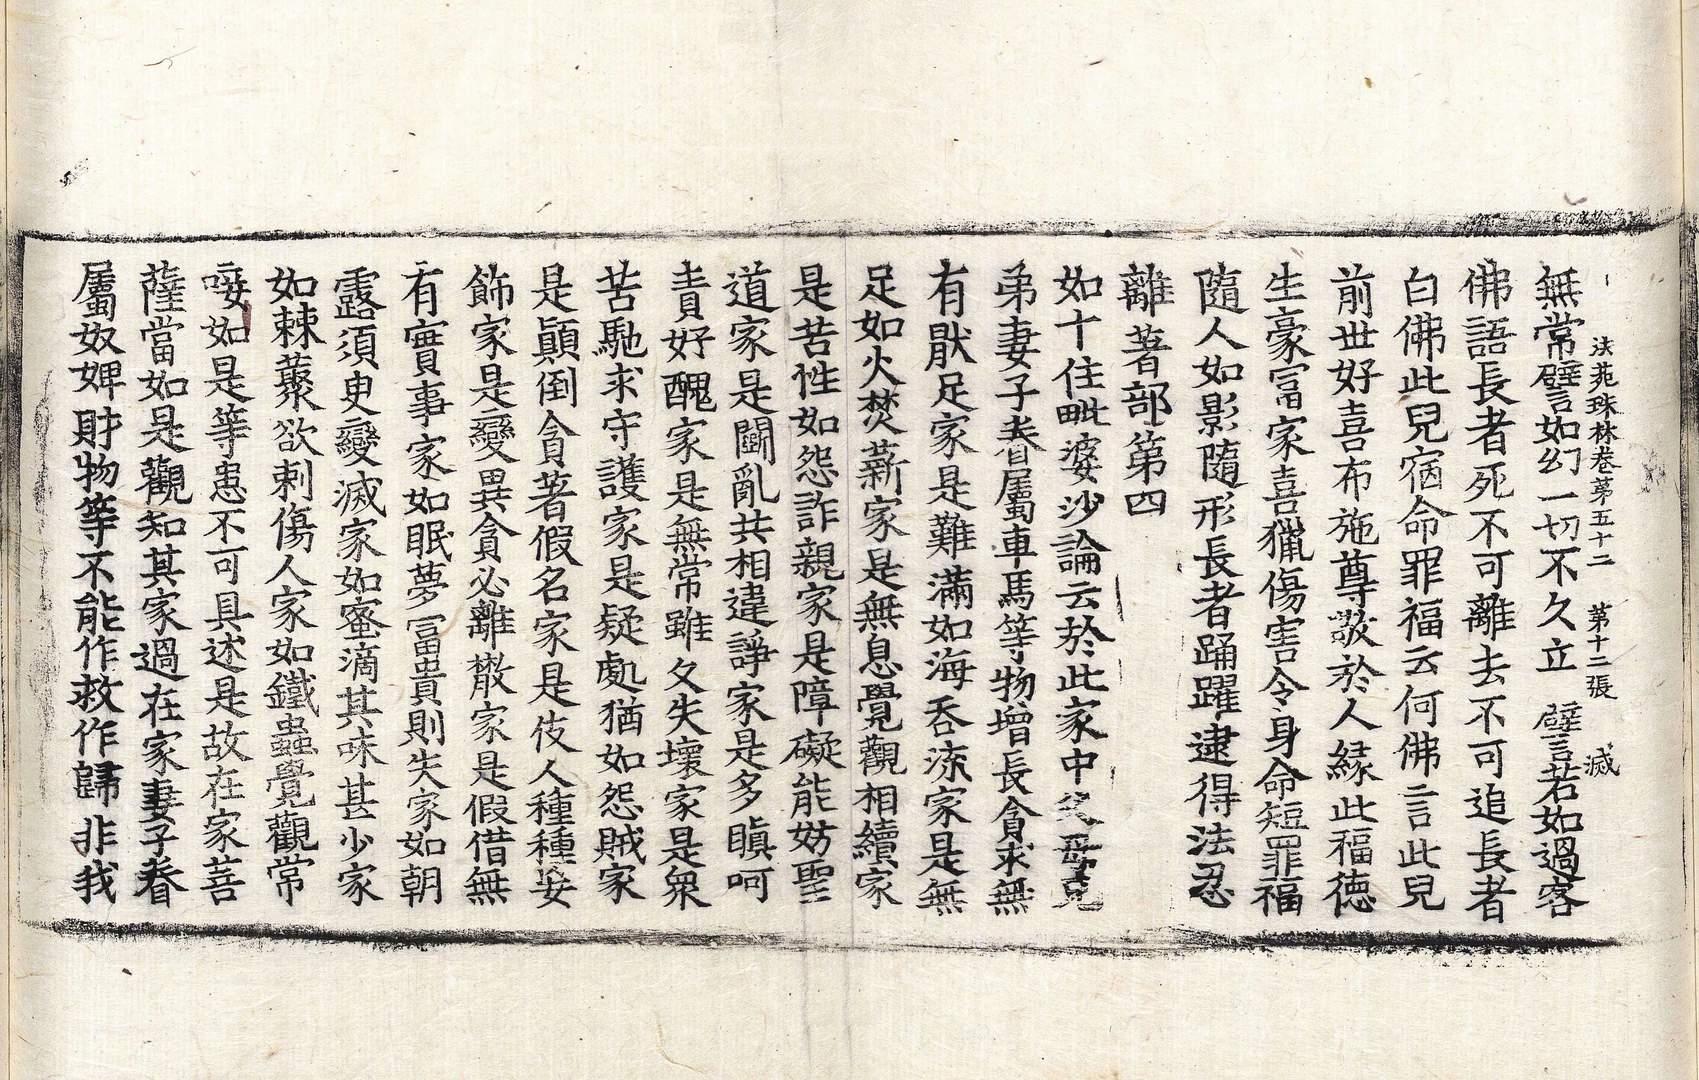 法苑珠林卷第五十二 第十二張 滅
無常譬如幻一切不久立 譬若如過客
佛語長者死不可離去不可追長者
白佛此兒宿命罪福云何佛言此兒
前世好喜布施尊敬於人緣此福德
生豪富家喜獵傷害令身命短罪福
隨人如影隨形長者踊躍逮得法忍
離著部第四
如十住毗婆沙論云於此家中父母兄
弟妻子眷屬車馬等物增長貪求無
有猒足家是難滿如海吞流家是無
足如火焚薪家是無息覺觀相續家
是苦性如怨詐親家是障礙能妨聖
道家是鬪亂共相違諍家是多瞋呵
責好醜家是無常雖久失壞家是衆
苦馳求守護家是疑處猶如怨賊家
是顛倒貪著假名家是伎人種種妄
飾家是變異貪必離散家是假借無
有實事家如眠夢冨貴則失家如朝
露須臾變滅家如蜜滴其味甚少家
如棘蘽欲刺傷人家如鐵蟲覺觀常
唼如是等患不可具述是故在家菩
薩當如是觀知其家過在家妻子眷
屬奴婢財物等不能作救作歸非我